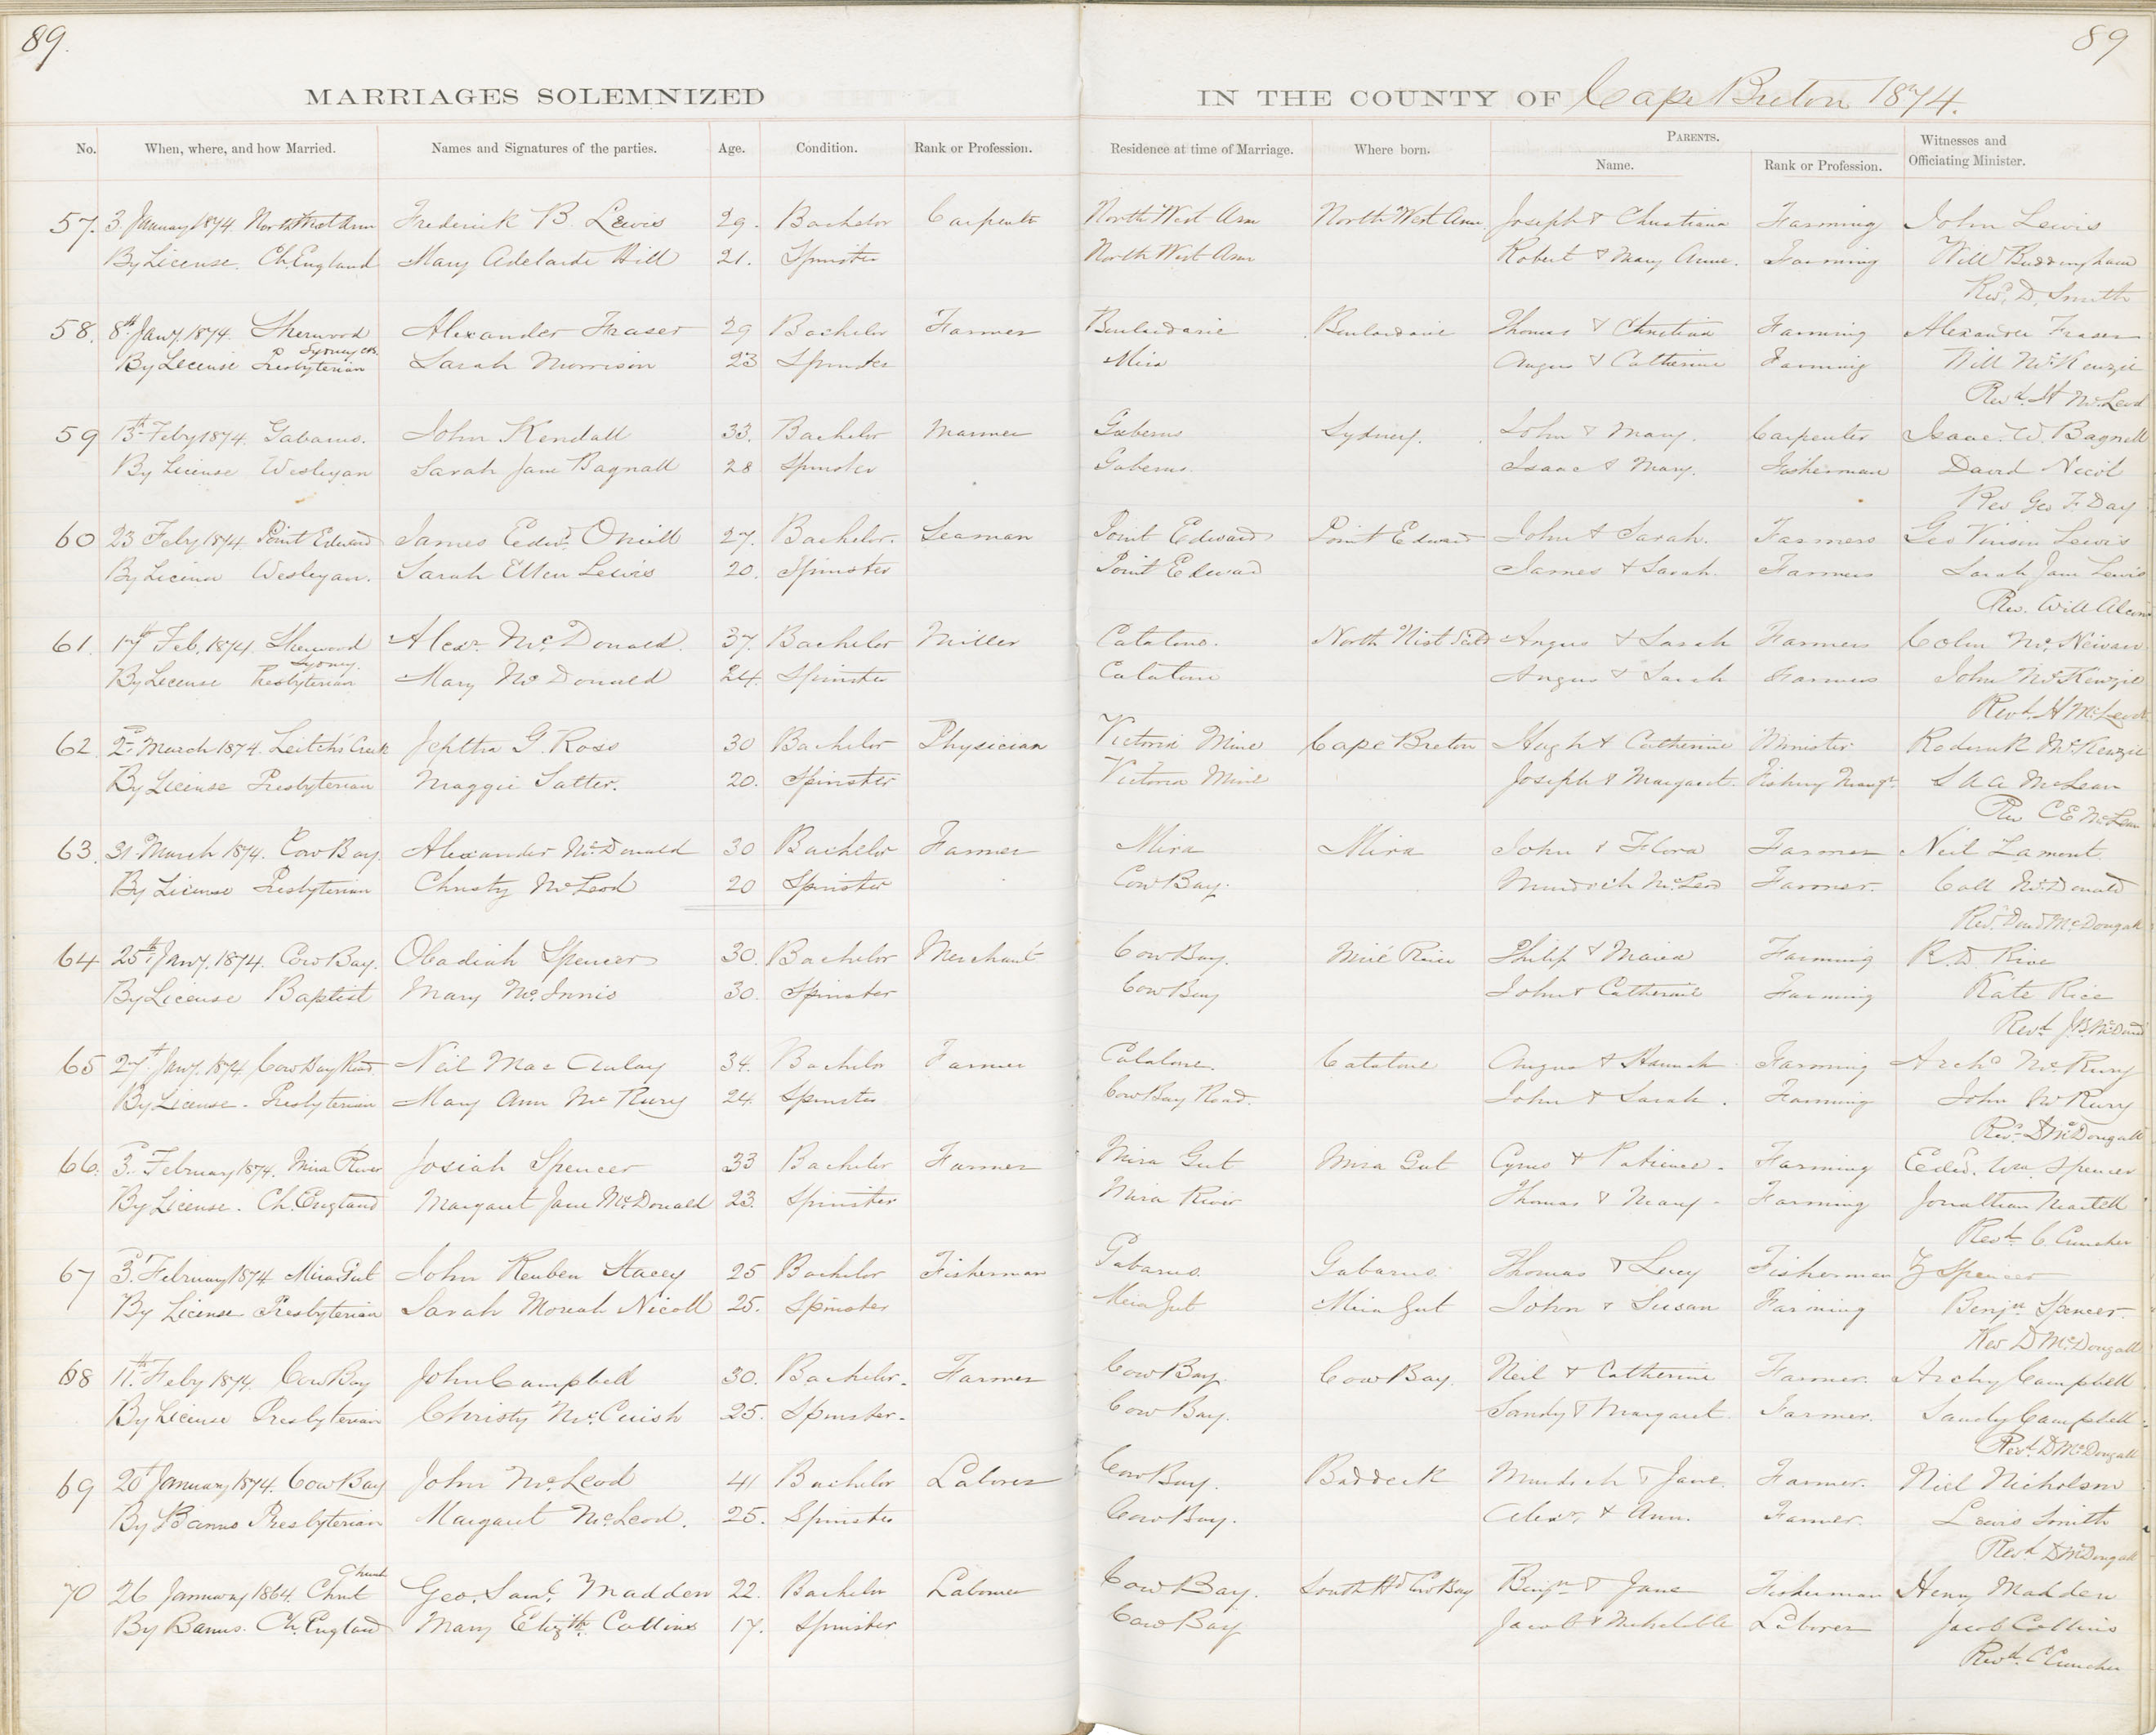 89.
89
MARRIAGES SOLEMNIZED IN THE COUNTY OF Cape Breton 1874.
No. When, where, and how Married. Names and Signatures of the parties. Age. Condition. Rank or Profession. Residence at time of Marriage. Where born. PARENTS. Name. Rank or Profession. Witnesses and Officiating Minister.
57. 3 January 1874 North West Arm Frederick B. Lewis 29. Bachelor Carpenter North West Arm North West Arm Joseph & Christiana Farming John Lewis
By License. Ch. England Mary Adelaide Hill 21. Spinster North West Arm Robert & Mary Anne. Farming Will Buddingham
Revd. D. Smith
58. 8th Jany. 1874. Sherwood Alexander Fraser 29 Bachelor Farmer Boularderie Boularderie Thomas & Christina Farming Alexander Fraser
Sydney CB.
By License Presbyterian Sarah Morrison 23 Spinster Mira Angus & Catherine Farming Will McKenzie
Revd. H McLeod
59 13th Feby 1874. Gabarus. John Kendall 33. Bachelor Mariner Gabarus Sydney. John & Mary. Carpenter Isaac W. Bagnell
By License Wesleyan Sarah Jane Bagnall 28 Spinster Gabarus. Isaac & Mary. Fisherman David Nicol
Rev Geo F. Day
60 23 Feby 1874 Point Edward James Edwd. Oneill 27. Bachelor. Seaman Point Edward Point Edward John & Sarah. Farmers Geo Lewis
By License Wesleyan. Sarah Ellen Lewis 20. Spinster Point Edward James & Sarah. Farmers Sarah Jane Lewis
Rev. Will
61. 17th Feb. 1874. Sherwood Alexr. McDonald. 37. Bachelor Miller Catalone. North Uist Angus & Sarah Farmers Colin
Sydney.
By License Presbyterian Mary McDonald 24. Spinster Catalone Angus & Sarah Farmers John McKenzie
Revd. H McLeod.
62. 2d March 1874. Leitch's Creek Jeptha G. Ross 30 Bachelor Physician Victoria Mine Cape Breton Hugh & Catherine Minister Roderick McKenzie
By License Presbyterian Maggie Salter. 20. Spinster Victoria Mine Joseph & Margaret. S A A McLean
Rev C E McLean
63. 31 March 1874. Cow Bay. Alexander McDonald 30 Bachelor Farmer Mira Mira John & Flora Farmer Neil Lamont.
By License Presbyterian Christy McLeod 20 Spinster Cow Bay. Murdoch McLeod Farmer. Coll McDonald
Revd. Davd McDougall
64 25th Jany. 1874. Cow Bay. Obadiah Spencer 30. Bachelor Merchant Cow Bay. Miré River Philip & Maria Farming R. D. Rice
By License Baptist Mary McInnis 30. Spinster Cow Bay John & Catherine Farming Kate Rice
Revd. J B McDonald
65 27th Jany. 1874 Cow Bay Road Neil MacAulay 34. Bachelor Farmer Catalone. Catalone Angus & Hannah Farming Archd McRury
By License. Presbyterian Mary Ann McRury 24. Spinster Cow Bay Road. John & Sarah. Farming John McRury
Revd. D McDougall
66. 3d February 1874. Mira River Josiah Spencer 33 Bachelor Farmer Mira Gut Mira Gut Cyrus & Patience. Farming Edwd. Wm. Spencer
By License. Ch. England Margaret Jane McDonald 23. Spinster Mira River Thomas & Mary. Farming Jonathan Martell
Revd. C. Cruncher
67 3d. February 1874 Mira Gut John Reuben Stacey 25 Bachelor Fisherman Gabarus. Gabarus. Thomas & Lucy Fisherman Z Spencer
By License Presbyterian Sarah Moriah Nicoll 25. Spinster Mira Gut Mira Gut John & Susan Farming Benjn Spencer.
Rev D McDougall
68 11th Feby 1874. Cow Bay John Campbell 30. Bachelor. Farmer Cow Bay. Cow Bay. Neil & Catherine Farmer. Archy Campbell
By License Presbyterian Christy McCuish 25. Spinster. Cow Bay. Sandy & Margaret. Farmer. Sandy Campbell
Revd. D McDougall
69 20th January 1874. Cow Bay John McLeod 41 Bachelor Laborer Cow Bay. Baddeck Murdoch & Jane. Farmer. Niel Nicholson
By Banns Presbyterian Margaret McLeod. 25. Spinster Cow Bay. Alexr. & Ann. Farmer. Lewis Smith
Revd. D McDougall
Church
70 26 January 1864. Christ Geo. Saml. Madden 22. Bachelor Laborer Cow Bay. South Hd Cow Bay Benjn & Jane Fisherman Henry Madden
By Banns. Ch. England Mary Elizth. Collins 17. Spinster Cow Bay Jacob & Mehetible Laborer Jacob Collins
Revd. C Cruncher